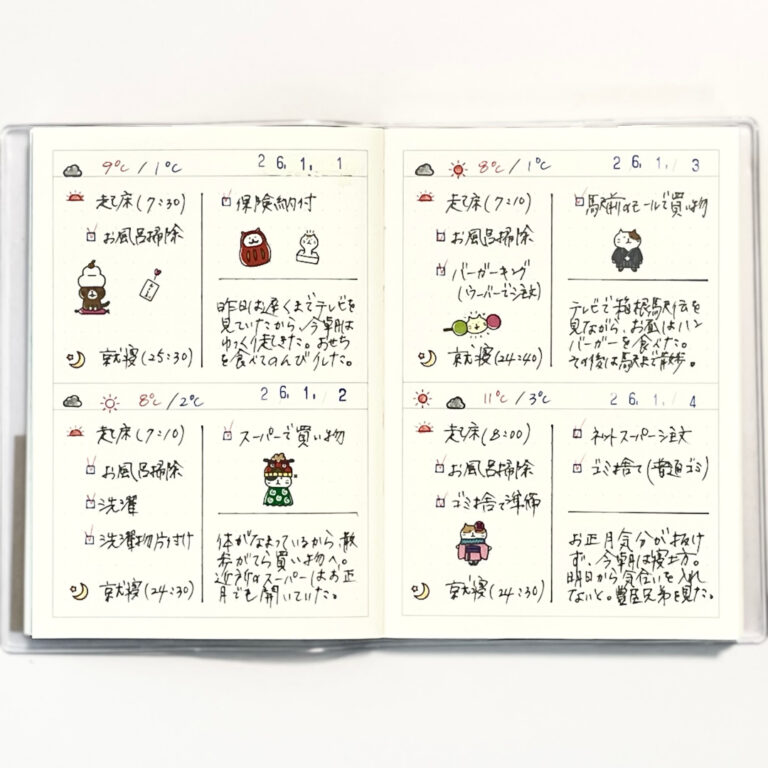 9℃/1℃
26.1.1
起床(7:30)
お風呂掃除
就寝(25:30)
保険納付
昨日は遅くまでテレビを
見ていたから、今朝は
ゆっくり起きた。おせち
を食べてのんびりした。
8℃/2℃
26.1.2
起床(7:10)
お風呂掃除
洗濯
洗濯物片付け
就寝(24:30)
スーパーで買い物
体がなまっているから、散
歩がてら買い物へ。
近所のスーパーはお正
月でも開いていた。
8℃/1℃
26.1.3
起床(7:10)
お風呂掃除
バーガーキング
(ウーバーで注文)
就寝(24:40)
駅前のモールで買い物
テレビで箱根駅伝を
見ながら、お昼はハン
バーガーを食べた。
その後は駅まで散歩。
11℃/3℃
26.1.4
起床(8:00)
お風呂掃除
ゴミ捨て準備
就寝(24:30)
ネットスーパー注文
ゴミ捨て(普通ゴミ)
お正月気分が抜け
ず、今朝は寝坊。
明日から気合いを入れ
ないと。豊臣兄弟を見た。